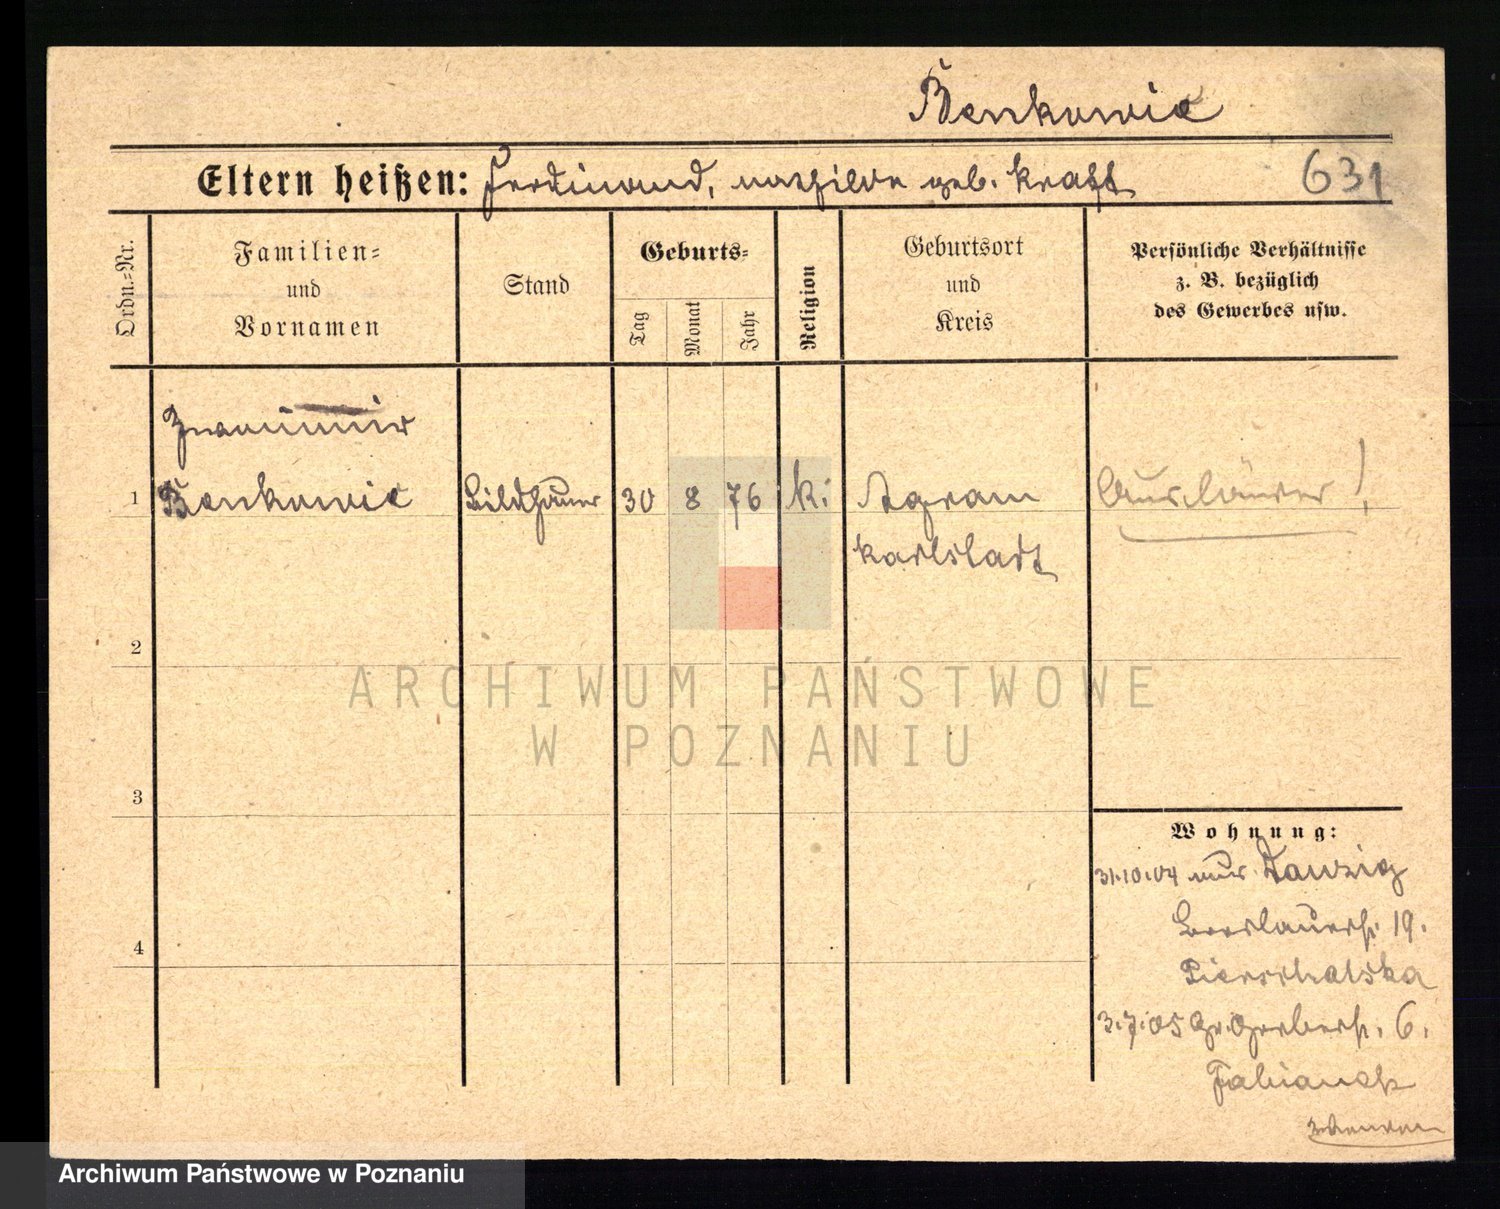 Benkowic
Eltern heißen: Ferdinand, Mathilde geb. Kraft 631
Ordn.-Nr.
Familien-
und
Vornamen
Stand
Geburts-
Tag
Monat
Jahr
Religion
Geburtsort
und
Kreis
Persönliche Verhältnisse
z. B. bezüglich
des Gewerbes usw.
Zwonimir
1 Benkowic Bildhauer 30 8 76 k. Agram Ausländer!
Karlstadt
2
3
4
Wohnung:
31.10.04 aus Danzig
Breslauerstr. 19.
3.7.05 Gr. Gerberstr. 6.
Fabianek
ARCHIWUM PAŃSTWOWE
W POZNANIU
Archiwum Państwowe w Poznaniu